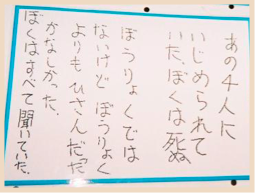 あの4人に
いじめられて
いた。ぼくは死ぬ
ぼうりょくでは
ないけど ぼうりょく
よりもひさんだった
かなしかった。
ぼくはすべて聞いていた。